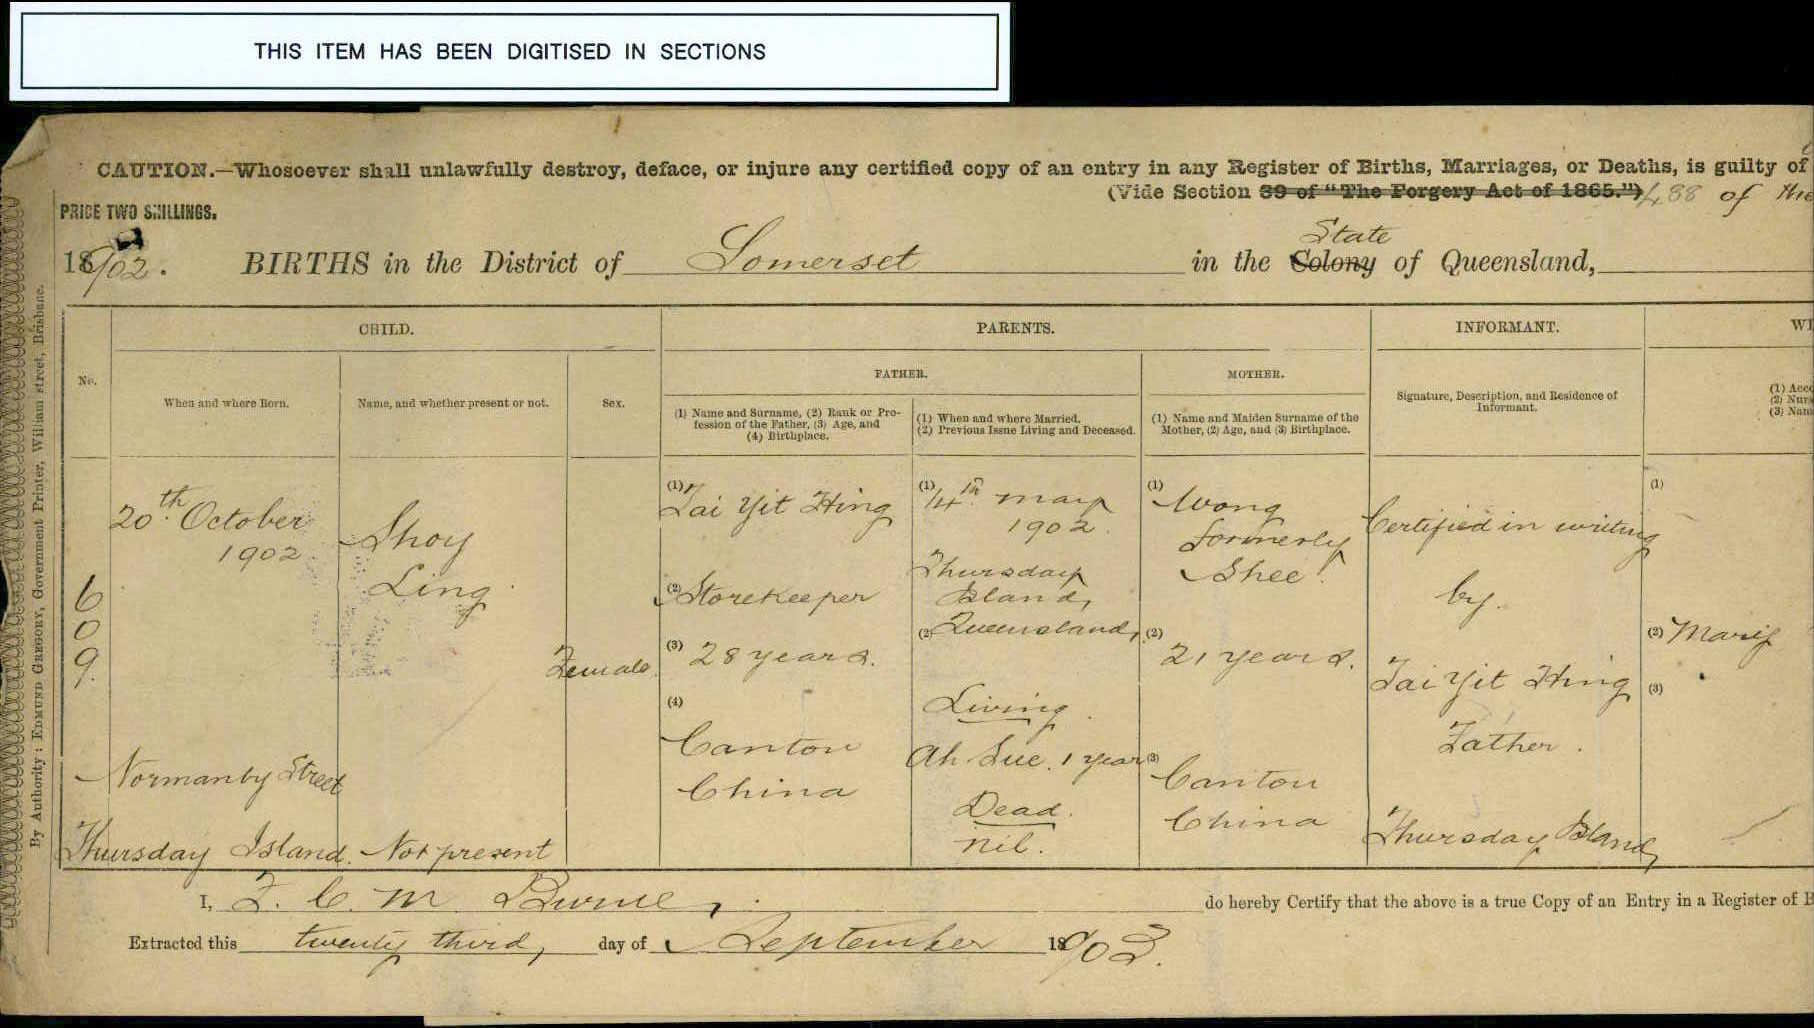 THIS ITEM HAS BEEN DIGITISED IN SECTIONS
CAUTION.—Whosoever shall unlawfully destroy, deface, or injure any certified copy of an entry in any Register of Births, Marriages, or Deaths, is guilty of
(Vide Section 39 of "The Forgery Act of 1865.") 488 of the
PRICE TWO SHILLINGS.
State
1902. BIRTHS in the District of Somerset in the Colony of Queensland,
By Authority: EDMUND GREGORY, Government Printer, William street, Brisbane.
CHILD. PARENTS. INFORMANT. WI
No. FATHER. MOTHER.
When and where Born.
Name, and whether present or not.
Sex.
(1) Name and Surname, (2) Rank or Pro-
fession of the Father, (3) Age, and
(4) Birthplace.
(1) When and where Married.
(2) Previous Issue Living and Deceased.
(1) Name and Maiden Surname of the
Mother, (2) Age, and (3) Birthplace.
Signature, Description, and Residence of
Informant.
(1) Acc
(2) Nurs
(3) Nam
609.
20th October
1902.
Normanby Street
Thursday Island.
Shoy
Ling.
Not present
Female.
(1) Tai Yit Hing
(2) Storekeeper
(3) 28 years.
(4)
Canton
China
(1) 14th May
1902.
Thursday
Island,
(2) Queensland,
Living.
Ah Sue. 1 year
Dead.
nil.
(1) Wong
formerly
Shee.
(2)
21 years.
(3)
Canton
China
Certified in writing
by.
Tai Yit Hing
Father.
Thursday Island,
(1)
(2) Mary
(3)
I, F. C. M. Burne, do hereby Certify that the above is a true Copy of an Entry in a Register of B
Extracted this twenty third, day of September 1903.